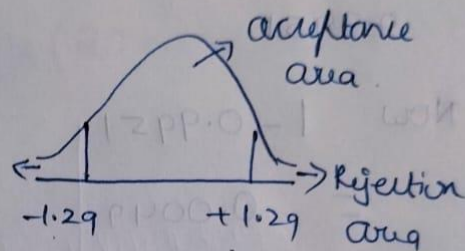 acceptance
area
Rejection
area
-1.29
+1.29